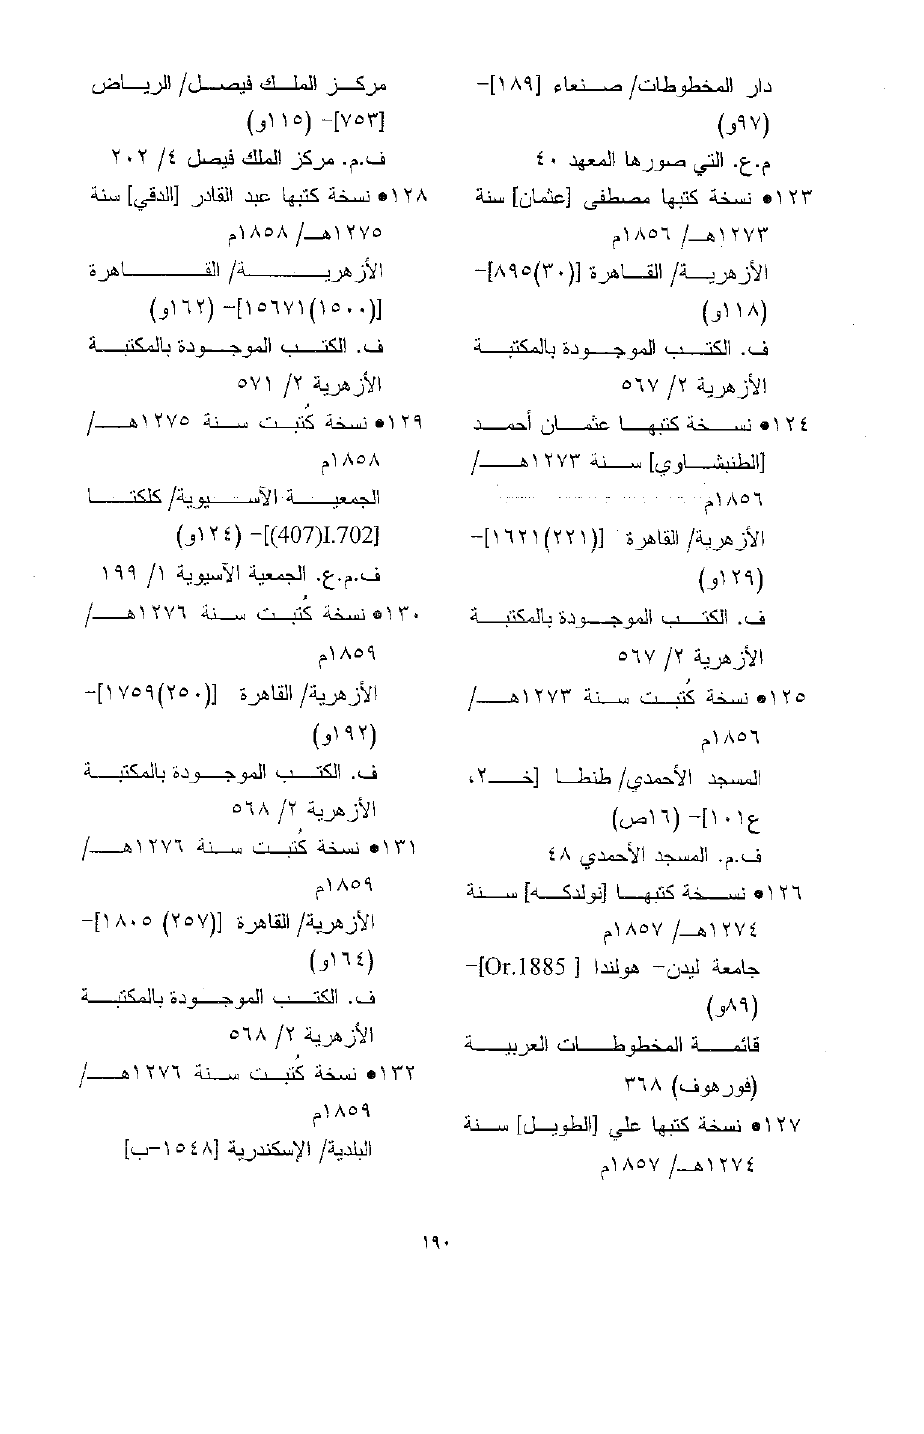 دار المخطوطات/ صنعاء [١٨٩]-
(٩٧و)
م.ع. التي صورها المعهد ٤٠
١٢٣• نسخة كتبها مصطفى [عثمان] سنة
١٢٧٣هـ/ ١٨٥٦م
الأزهرية/ القاهرة [(٣٠)٨٩٥]-
(١١٨و)
ف. الكتب الموجودة بالمكتبة
الأزهرية ٢/ ٥٦٧
١٢٤• نسخة كتبها عثمان أحمد
[الطنبشاوي] سنة ١٢٧٣هـ/
١٨٥٦م
الأزهرية/ القاهرة [(٢٢١)١٦٢١]-
(١٢٩و)
ف. الكتب الموجودة بالمكتبة
الأزهرية ٢/ ٥٦٧
١٢٥• نسخة كُتبت سنة ١٢٧٣هـ/
١٨٥٦م
المسجد الأحمدي/ طنطا [خ٢،
ع١٠١]- (١٦ص)
ف.م. المسجد الأحمدي ٤٨
١٢٦• نسخة كتبها [نولدكه] سنة
١٢٧٤هـ/ ١٨٥٧م
جامعة ليدن- هولندا [Or.1885]-
(٨٩و)
قائمة المخطوطات العربية
(فورهوف) ٣٦٨
١٢٧• نسخة كتبها علي [الطويل] سنة
١٢٧٤هـ/ ١٨٥٧م
مركز الملك فيصل/ الرياض
[٧٥٣]- (١١٥و)
ف.م. مركز الملك فيصل ٤/ ٢٠٢
١٢٨• نسخة كتبها عبد القادر [الدقي] سنة
١٢٧٥هـ/ ١٨٥٨م
الأزهرية/ القاهرة
[(١٥٠٠)١٥٦٧١]- (١٦٢و)
ف. الكتب الموجودة بالمكتبة
الأزهرية ٢/ ٥٧١
١٢٩• نسخة كُتبت سنة ١٢٧٥هـ/
١٨٥٨م
الجمعية الآسيوية/ كلكتا
[(407)I.702]- (١٢٤و)
ف.م.ع. الجمعية الآسيوية ١/ ١٩٩
١٣٠• نسخة كُتبت سنة ١٢٧٦هـ/
١٨٥٩م
الأزهرية/ القاهرة [(٢٥٠)١٧٥٩]-
(١٩٢و)
ف. الكتب الموجودة بالمكتبة
الأزهرية ٢/ ٥٦٨
١٣١• نسخة كُتبت سنة ١٢٧٦هـ/
١٨٥٩م
الأزهرية/ القاهرة [(٢٥٧) ١٨٠٥]-
(١٦٤و)
ف. الكتب الموجودة بالمكتبة
الأزهرية ٢/ ٥٦٨
١٣٢• نسخة كُتبت سنة ١٢٧٦هـ/
١٨٥٩م
البلدية/ الإسكندرية [١٥٤٨-ب]
١٩٠